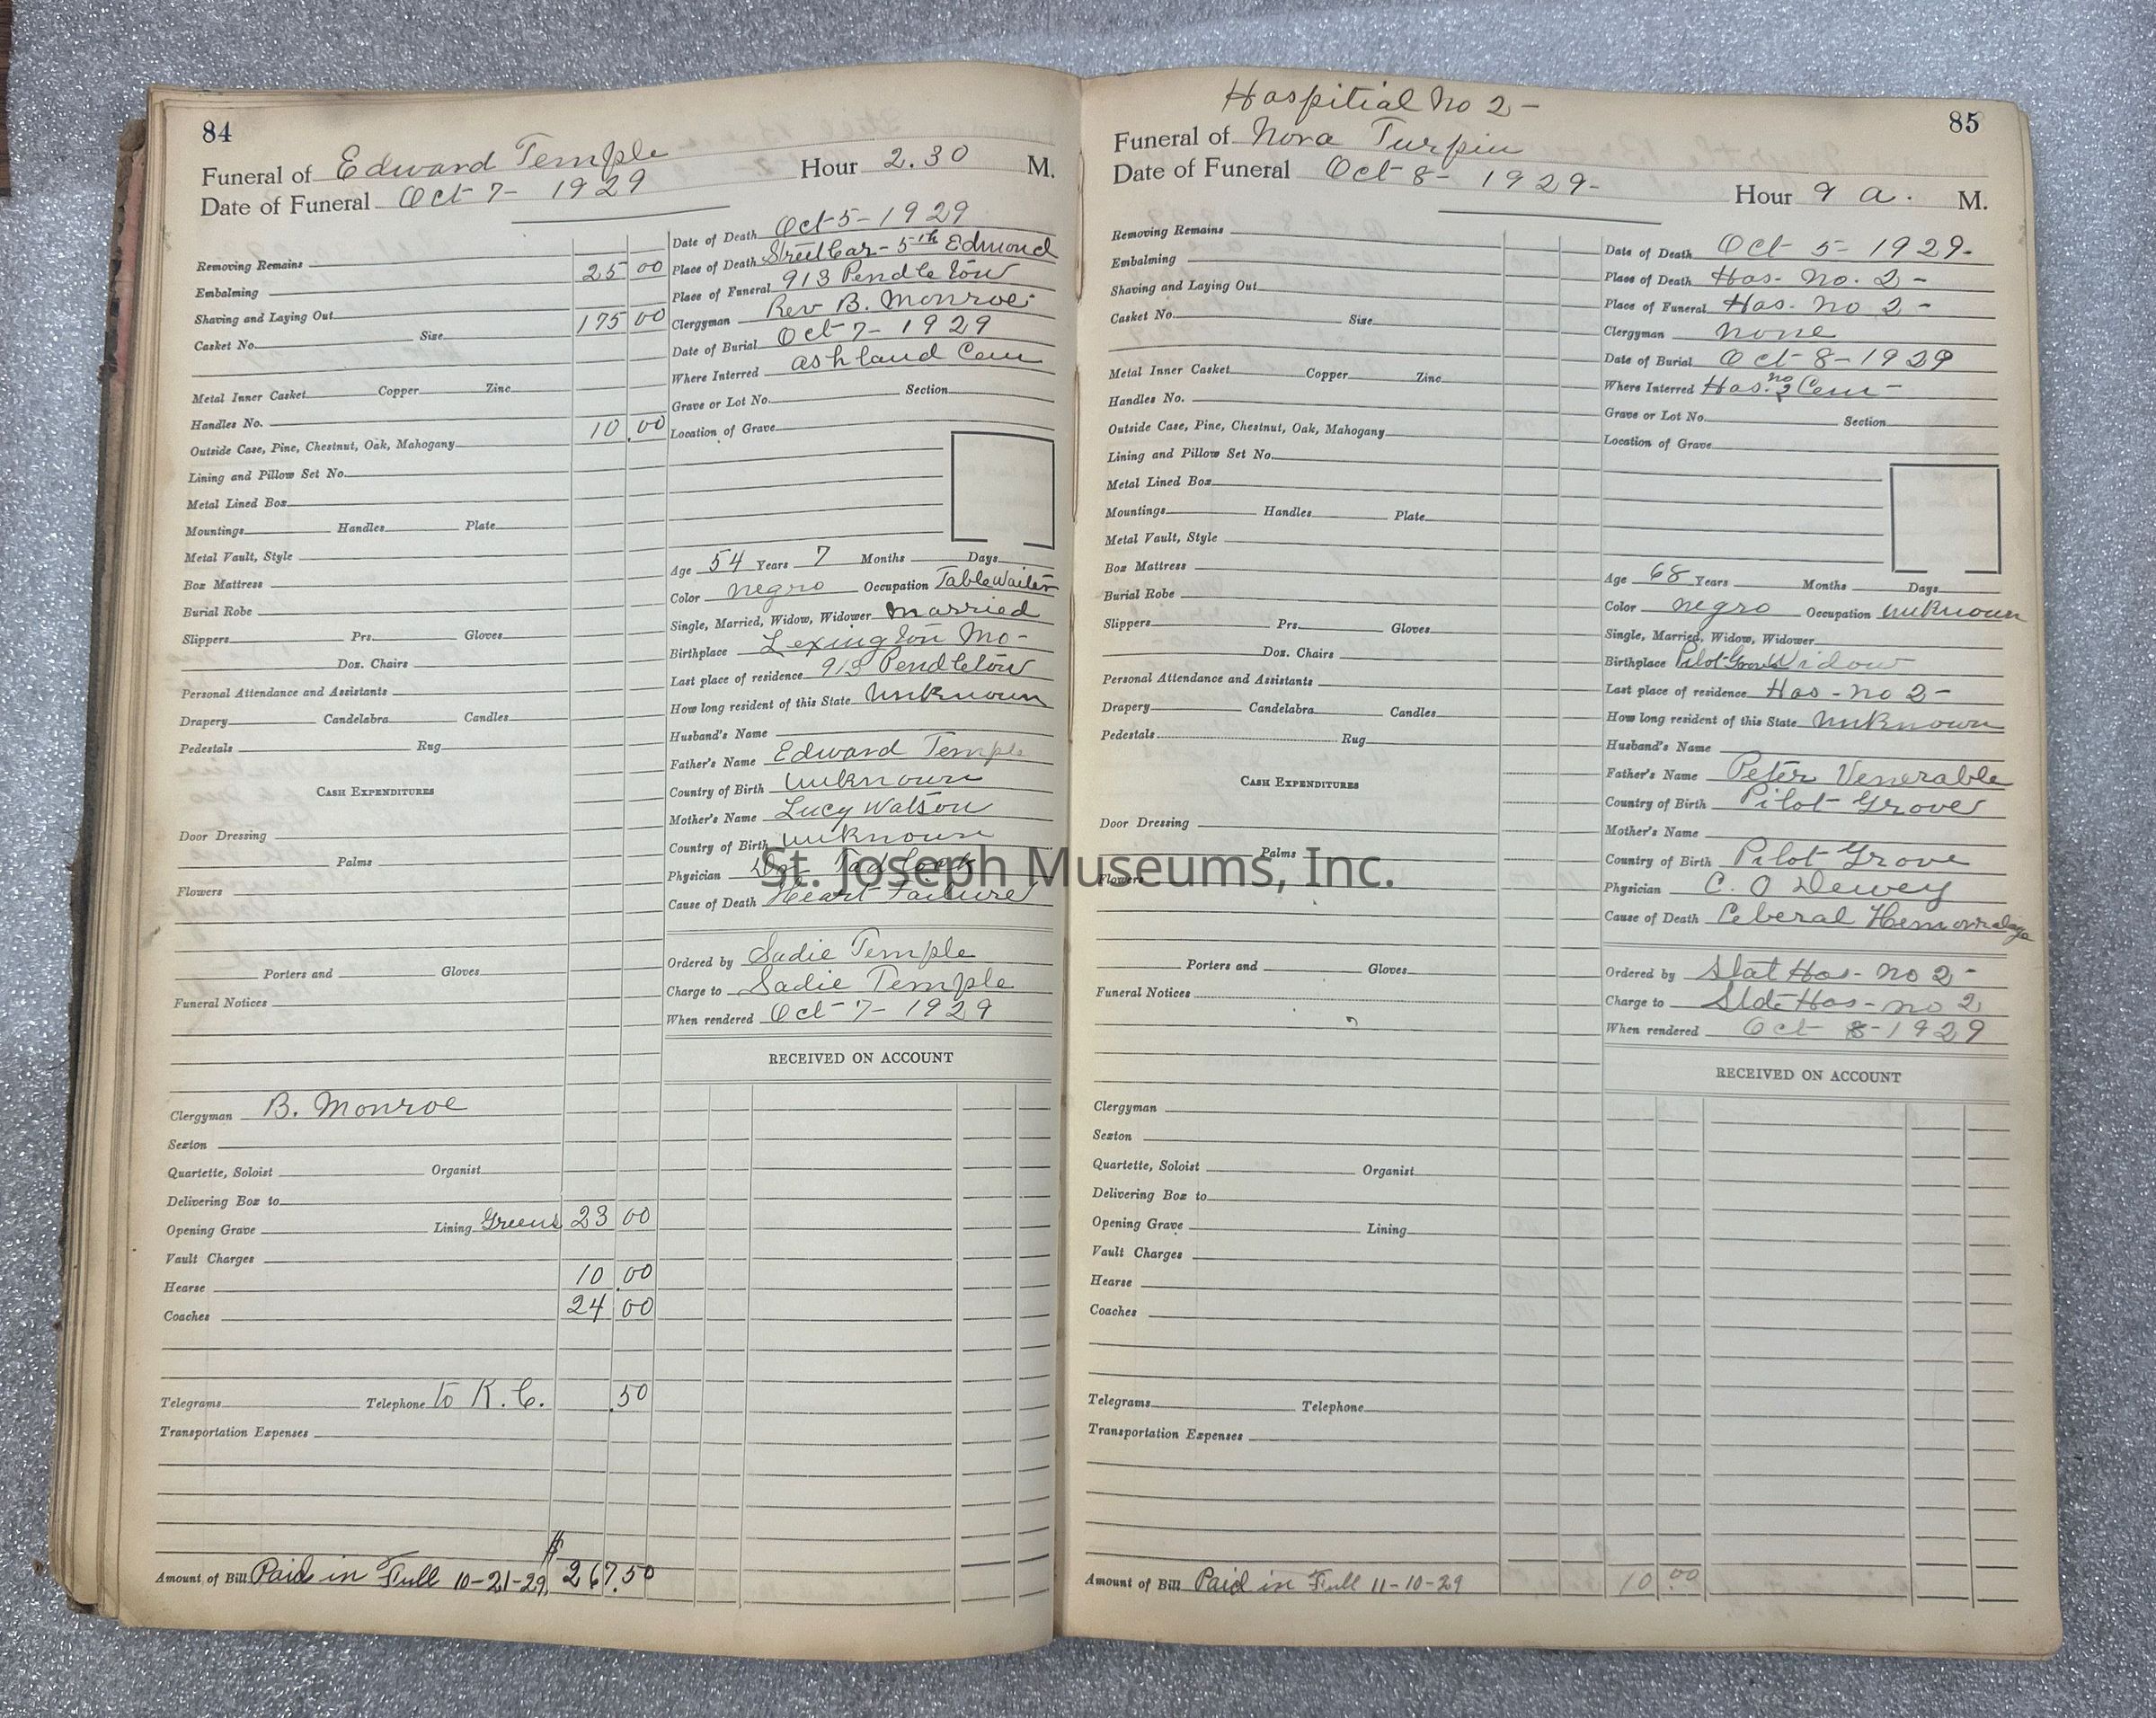 84
Funeral of Edward Temple Hour 2.30 M.
Date of Funeral Oct 7- 1929
Removing Remains
Embalming 25 00
Shaving and Laying Out
Casket No. Size 175 00
Metal Inner Casket Copper Zinc
Handles No.
Outside Case, Pine, Chestnut, Oak, Mahogany 10.00
Lining and Pillow Set No.
Metal Lined Box
Mountings Handles Plate
Metal Vault, Style
Box Mattress
Burial Robe
Slippers Prs. Gloves
Doz. Chairs
Personal Attendance and Assistants
Drapery Candelabra Candles
Pedestals Rug
CASH EXPENDITURES
Door Dressing
Palms
Flowers
Porters and Gloves
Funeral Notices
Clergyman B. Monroe
Sexton
Quartette, Soloist Organist
Delivering Box to
Opening Grave Lining Greens 23 00
Vault Charges
Hearse 10.00
Coaches 24 00
Telegrams Telephone to K.C. .50
Transportation Expenses
Amount of Bill Paid in Full 10-21-29 $ 267.50
Date of Death Oct-5-1929
Place of Death Street Car- 5th Edmond
Place of Funeral 913 Pendleton
Clergyman Rev B. Monroe
Date of Burial Oct-7-1929
Where Interred ashland Cem
Grave or Lot No. Section
Location of Grave
Age 54 Years 7 Months Days
Color negro Occupation Table Waiter
Single, Married, Widow, Widower married
Birthplace Lexington Mo-
Last place of residence 913 Pendleton
How long resident of this State unknown
Husband's Name
Father's Name Edward Temple
Country of Birth unknown
Mother's Name Lucy Watson
Country of Birth unknown
Physician Tadlock
Cause of Death Heart Failure
Ordered by Sadie Temple
Charge to Sadie Temple
When rendered Oct-7-1929
RECEIVED ON ACCOUNT
St. Joseph Museums, Inc.
Haspitial No 2-
85
Funeral of Nora Turpin
Date of Funeral Oct-8- 1929- Hour 9 a. M.
Removing Remains
Embalming
Shaving and Laying Out
Casket No. Size
Metal Inner Casket Copper Zinc
Handles No.
Outside Case, Pine, Chestnut, Oak, Mahogany
Lining and Pillow Set No.
Metal Lined Box
Mountings Handles Plate
Metal Vault, Style
Box Mattress
Burial Robe
Slippers Prs. Gloves
Doz. Chairs
Personal Attendance and Assistants
Drapery Candelabra Candles
Pedestals Rug
CASH EXPENDITURES
Door Dressing
Palms
Flowers
Porters and Gloves
Funeral Notices
Clergyman
Sexton
Quartette, Soloist Organist
Delivering Box to
Opening Grave Lining
Vault Charges
Hearse
Coaches
Telegrams Telephone
Transportation Expenses
Amount of Bill Paid in Full 11-10-29 10.00
Date of Death Oct 5-1929-
Place of Death Hos- No. 2-
Place of Funeral Hos- No 2-
Clergyman none
Date of Burial Oct-8-1929
Where Interred Hos. no 2 Cem-
Grave or Lot No. Section
Location of Grave
Age 68 Years Months Days
Color negro Occupation unknown
Single, Married, Widow, Widower
Birthplace Pilot Grove Widow
Last place of residence Hos-no 2-
How long resident of this State unknown
Husband's Name
Father's Name Peter Venerable
Country of Birth Pilot Grove
Mother's Name
Country of Birth Pilot Grove
Physician C. O Dewey
Cause of Death Ceberal Hemorralage
Ordered by Stat Hos- no 2-
Charge to State Hos- no 2
When rendered Oct 8-1929
RECEIVED ON ACCOUNT